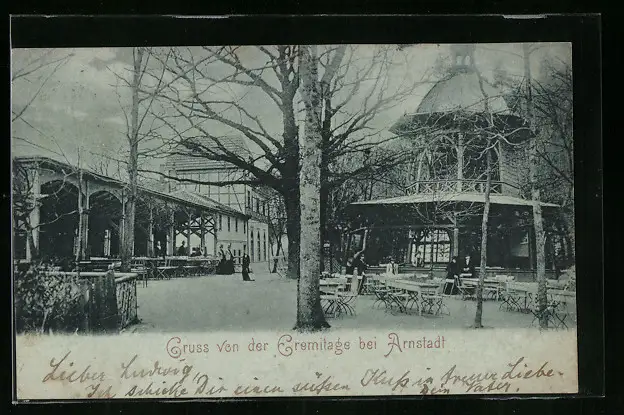 Gruss von der Eremitage bei Arnstadt.
Lieber Ludwig,
Ich schicke Dir einen süssen Kuss in treuer Liebe.
Dein Vater.